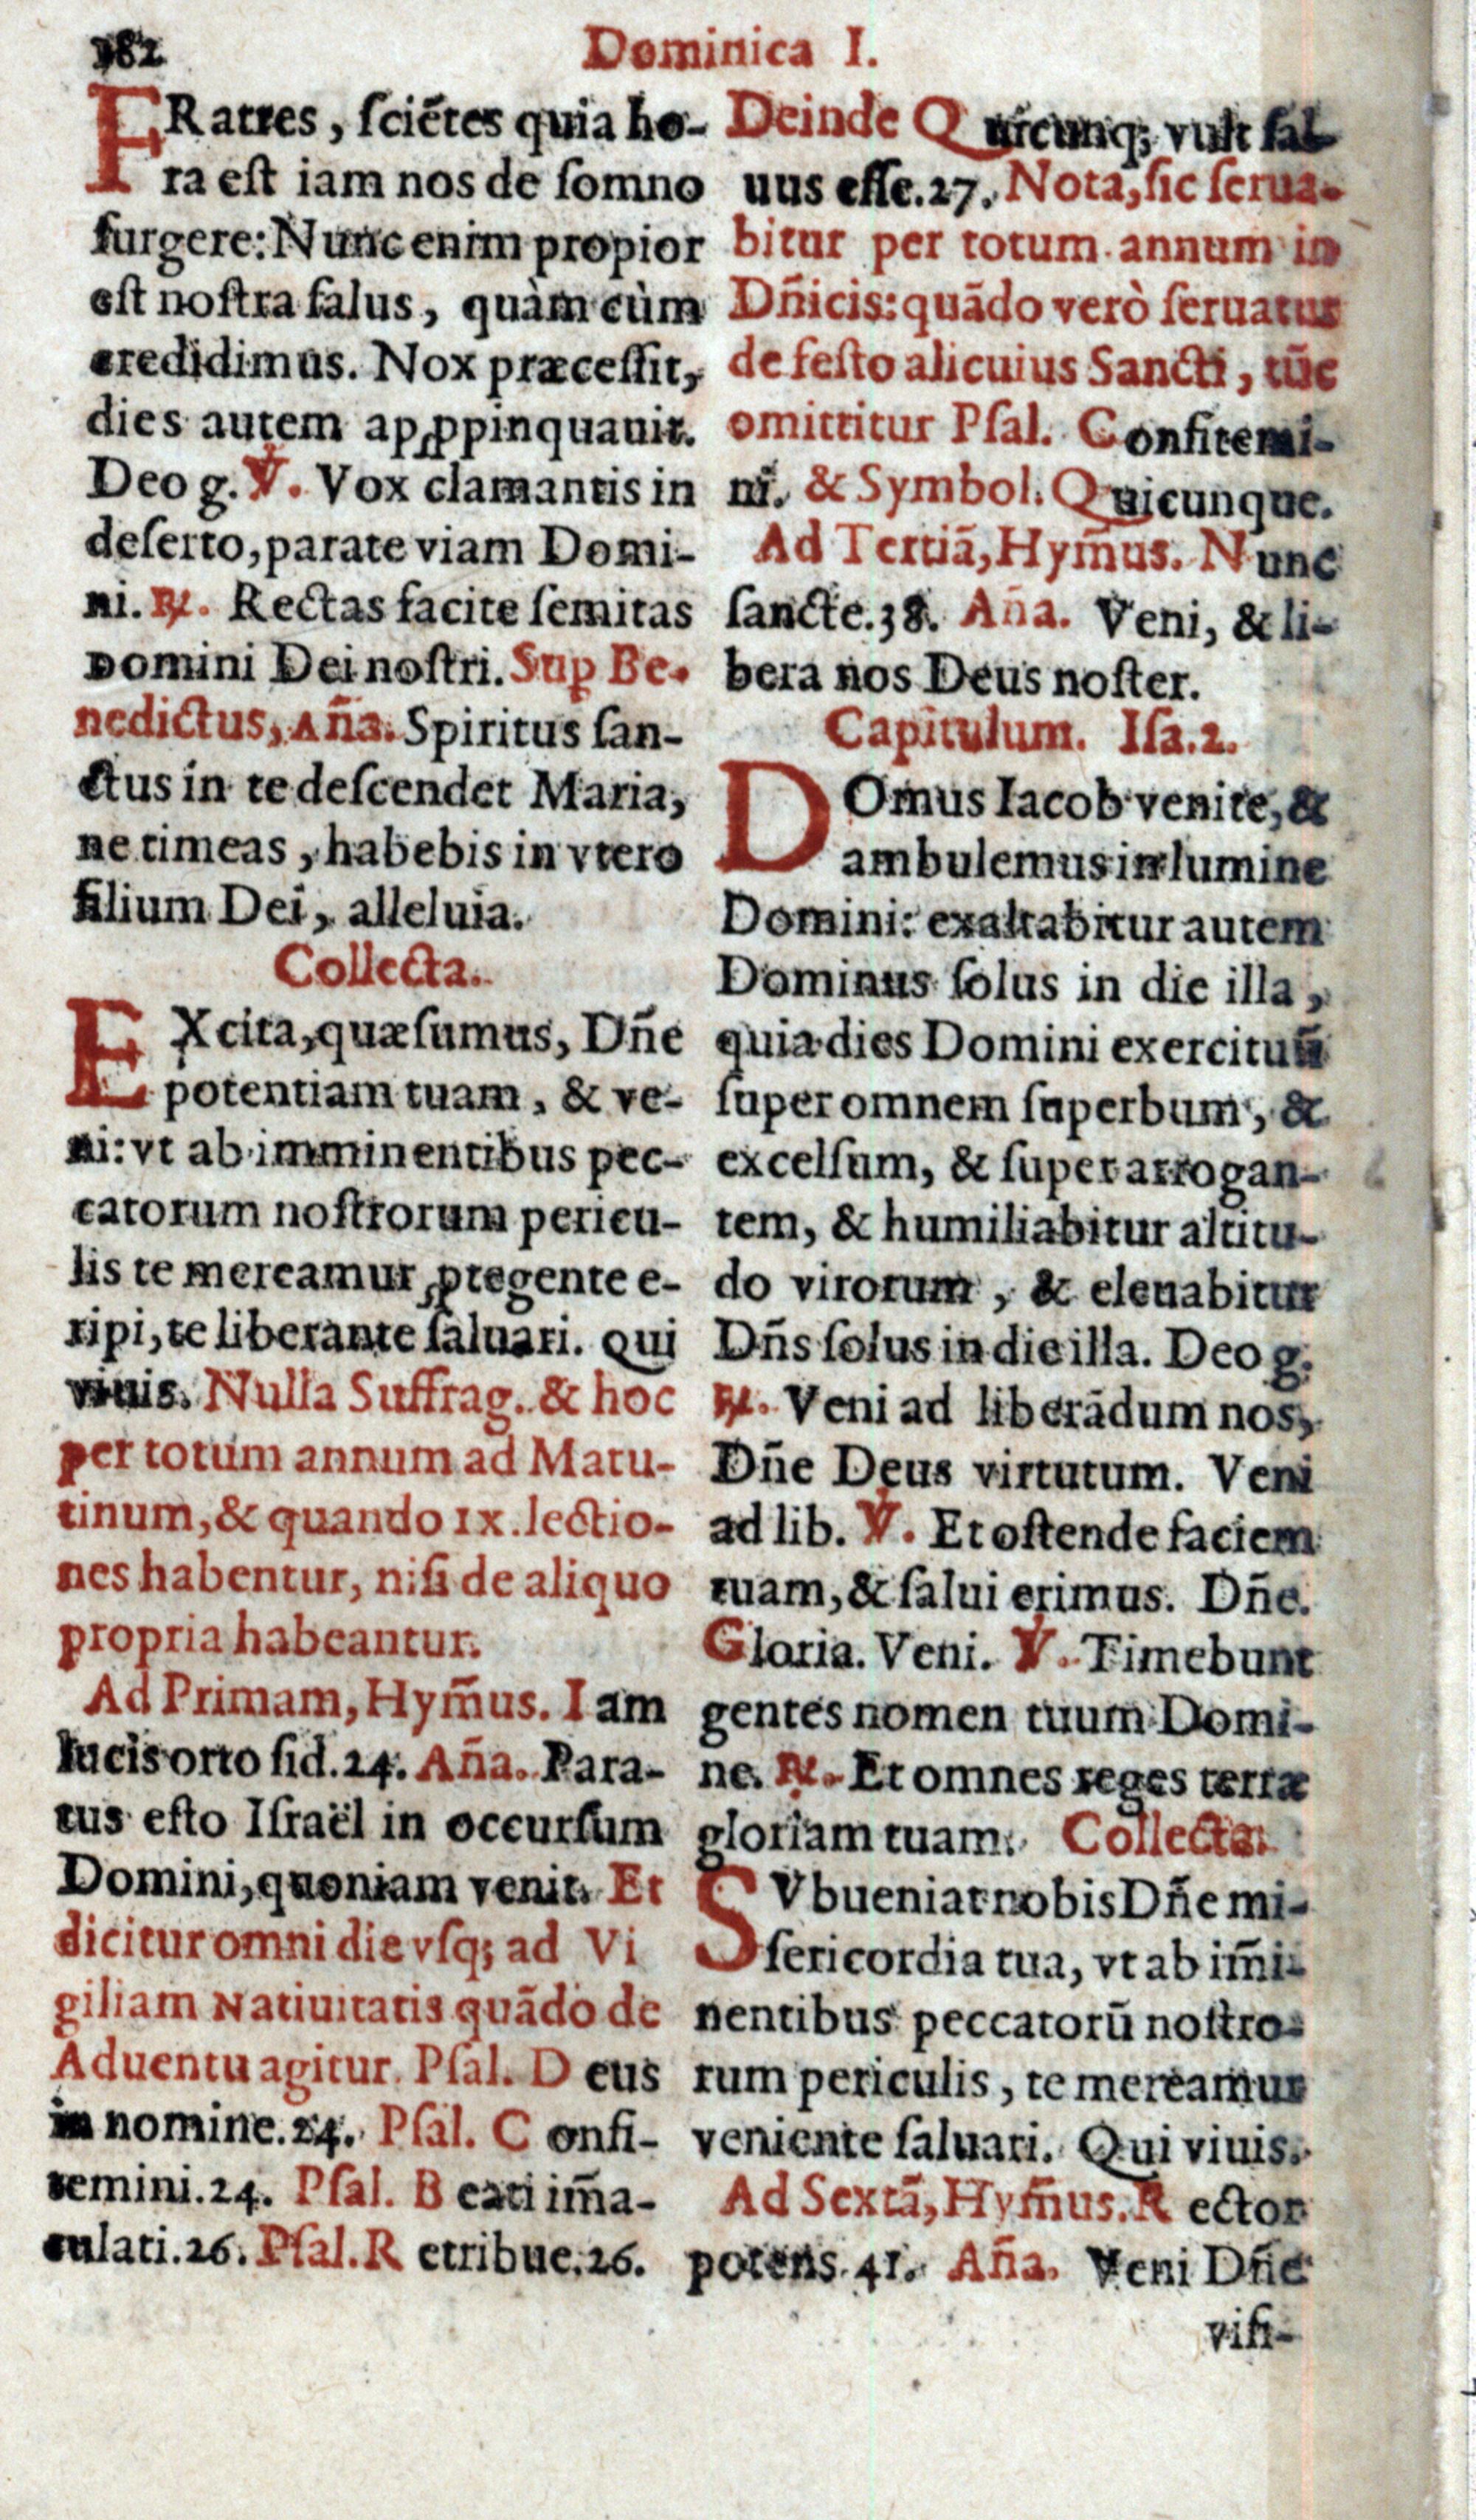 182
Dominica I.
FRatres, ſciẽtes quia ho-
ra eſt iam nos de ſomno
ſurgere: Nunc enim propior
eſt noſtra ſalus, quàm cùm
credidimus. Nox præceſſit,
dies autem apꝓpinquauit.
Deo g. ℣. Vox clamantis in
deſerto, parate viam Domi-
ni. ℟. Rectas facite ſemitas
Domini Dei noſtri. Suꝑ Be-
nedictus, Aña. Spiritus ſan-
ctus in te deſcendet Maria,
ne timeas, habebis in vtero
filium Dei, alleluia.
Collecta.
EXcita, quæſumus, Dñe
potentiam tuam, & ve-
ni: vt ab imminentibus pec-
catorum noſtrorum pericu-
lis te mereamur ꝓtegente e-
ripi, te liberante ſaluari. Qui
viuis. Nulla Suffrag. & hoc
per totum annum ad Matu-
tinum, & quando IX. lectio-
nes habentur, niſi de aliquo
propria habeantur.
Ad Primam, Hym̃us. Iam
lucis orto ſid. 24. Aña. Para-
tus eſto Iſraël in occurſum
Domini, quoniam venit. Et
dicitur omni die vſq; ad Vi
giliam Natiuitatis quãdo de
Aduentu agitur. Pſal. Deus
in nomine. 24. Pſal. Confi-
temini. 24. Pſal. Beati im̃a-
culati. 26. Pſal. Retribue. 26.
Deinde Quicunq; vult ſal-
uus eſſe. 27. Nota, ſic ſerua-
bitur per totum annum in
Dñicis: quãdo verò ſeruatur
de feſto alicuius Sancti, tũc
omittitur Pſal. Confitemi-
ni. & Symbol. Quicunque.
Ad Tertiã, Hym̃us. Nunc
ſancte. 38. Aña. Veni, & li-
bera nos Deus noſter.
Capitulum. Iſa. 2.
DOmus Iacob venite, &
ambulemus in lumine
Domini: exaltabitur autem
Dominus ſolus in die illa,
quia dies Domini exercituũ
ſuper omnem ſuperbum, &
excelſum, & ſuper arrogan-
tem, & humiliabitur altitu-
do virorum, & eleuabitur
Dñs ſolus in die illa. Deo g.
℟. Veni ad liberãdum nos,
Dñe Deus virtutum. Veni
ad lib. ℣. Et oſtende faciem
tuam, & ſalui erimus. Dñe.
Gloria. Veni. ℣. Timebunt
gentes nomen tuum Domi-
ne. ℟. Et omnes reges terræ
gloriam tuam. Collecta.
SVbueniat nobis Dñe mi-
ſericordia tua, vt ab im̃i-
nentibus peccatorũ noſtro-
rum periculis, te mereamur
veniente ſaluari. Qui viuis.
Ad Sextã, Hym̃us. Rector
potens. 41. Aña. Veni Dñe
viſi-